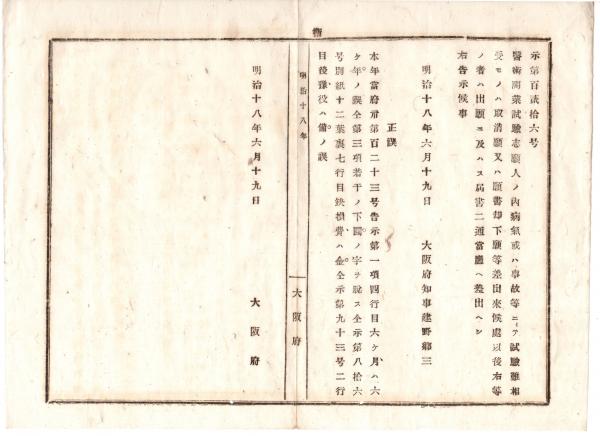 示第百貳拾六号
醫術開業試驗志願人ノ內病氣或ハ事故等ニテ試驗難相
受モノハ取消願又ハ願書却下願等差出來候處以後右等
ノ者ハ出願ニ及ハス屆書二通當廳ヘ差出ヘシ
右告示候事
明治十八年六月十九日 大阪府知事建野鄕三
正誤
本年當府甲第百二十三号告示第一項四行目六ケ月ハ六
ケ年ノ誤全第三項若干ノ下圓ノ字ヲ脫ス全示第八拾六
号別紙十二葉裏七行目鉄損費ハ金全示第九十三号二行
目後 役ハ備ノ誤
明治十八年
大阪府
明治十八年六月十九日
大阪府